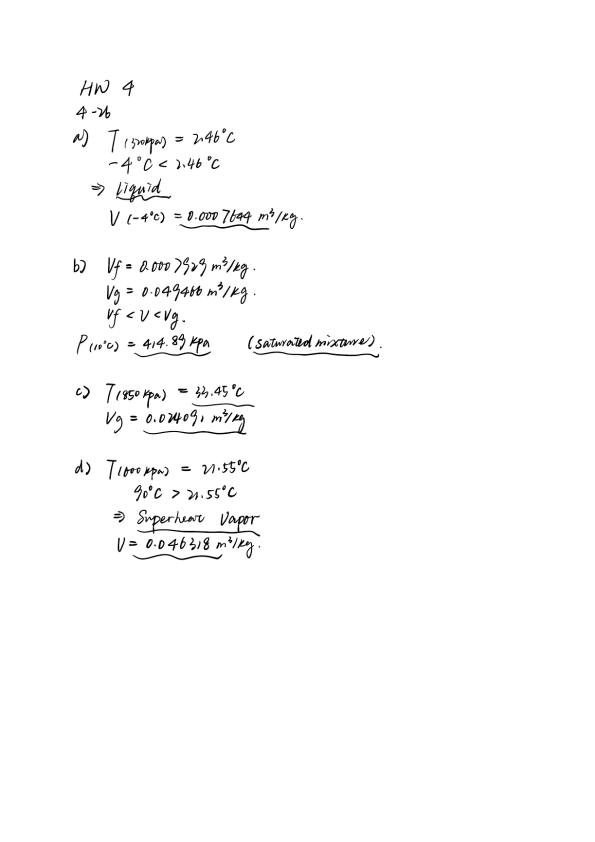 HW 4
4-26
a) T(320kpa) = 2.46°C
-4°C < 2.46°C
⇒ Liquid
V (-4°C) = 0.0007644 m³/kg.
b) Vf = 0.0007929 m³/kg.
Vg = 0.049466 m³/kg.
Vf < V < Vg.
P(10°C) = 414.89 kpa (saturated mixture).
c) T(850 kpa) = 33.45°C
Vg = 0.024091 m³/kg
d) T(600 kpa) = 21.55°C
90°C > 21.55°C
⇒ Superheat Vapor
V = 0.046318 m³/kg.